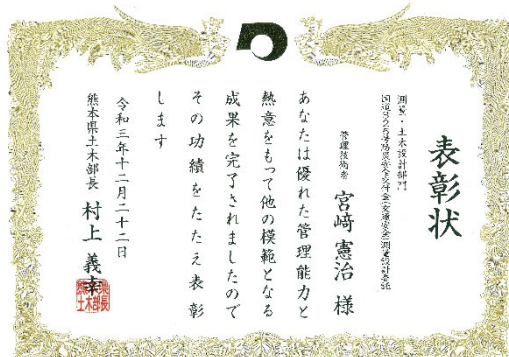 表彰状
測量・土木設計部門
国道325号防災安全交付金(交通安全)測量設計委託
管理技術者 宮﨑 憲治 様
あなたは優れた管理能力と
熱意をもって他の模範となる
成果を完了されましたので
その功績をたたえ表彰
します
令和三年十二月二十二日
熊本県土木部長 村上 義幸